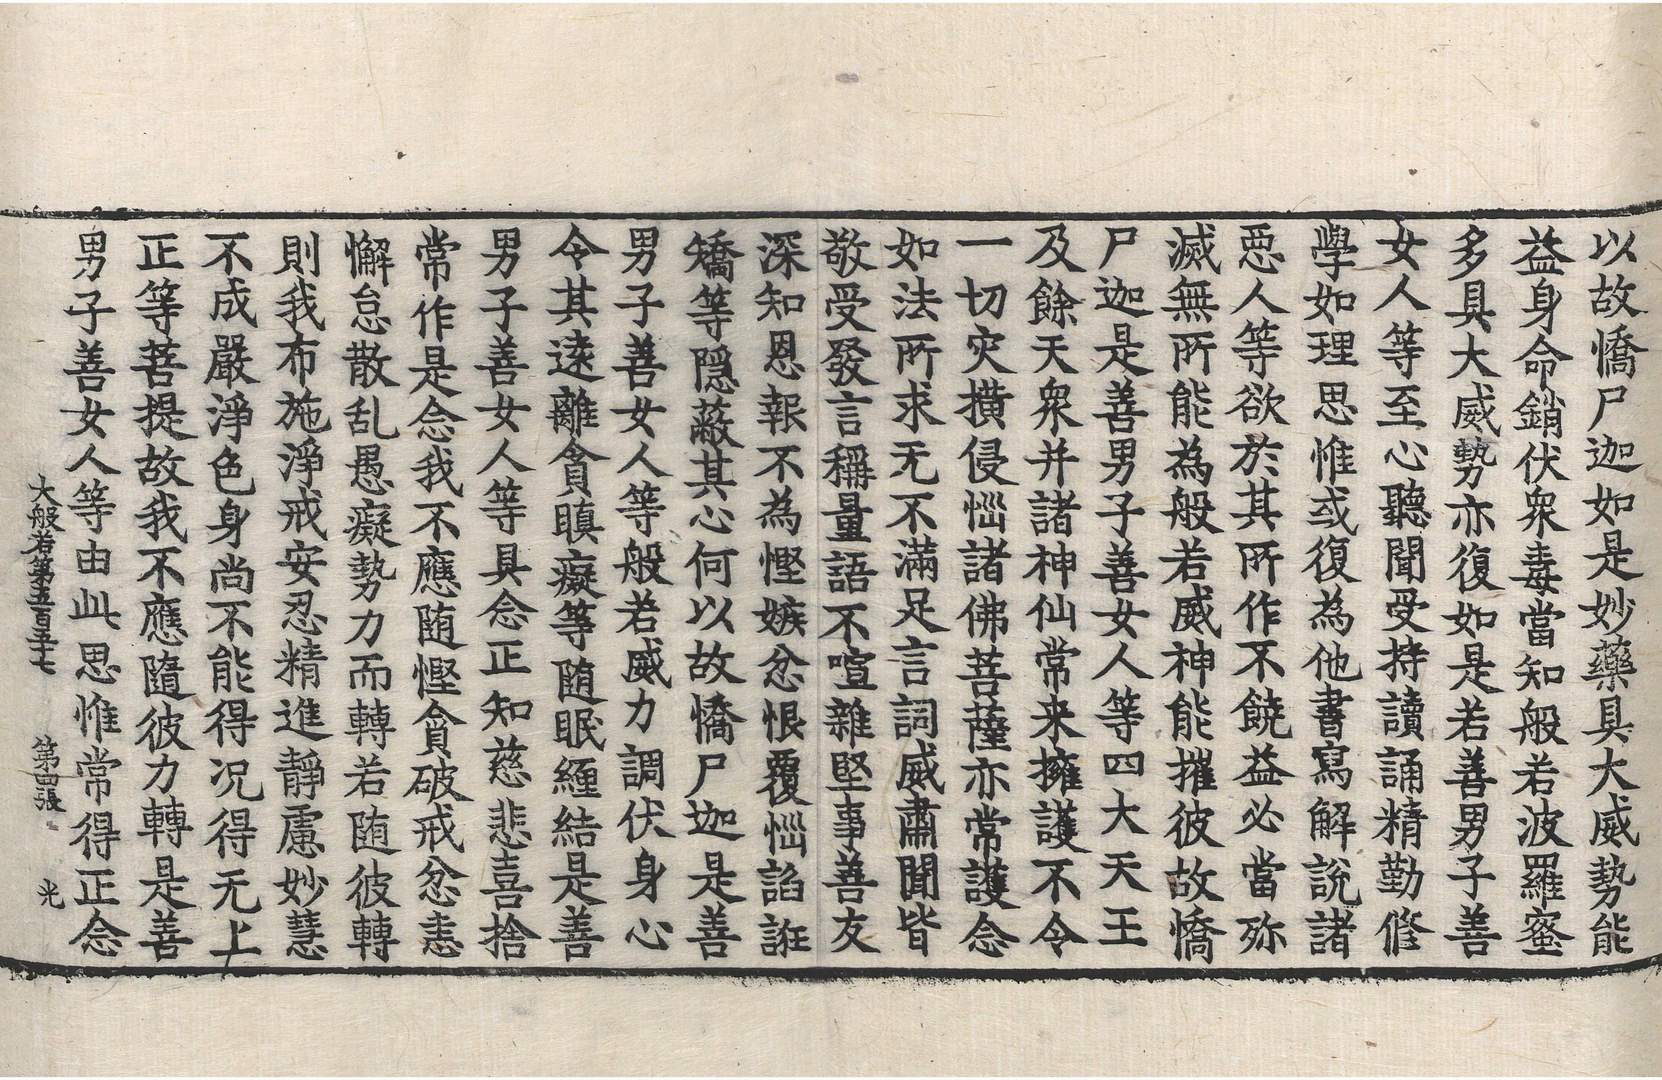 以故憍尸迦如是妙藥具大威勢能
益身命銷伏衆毒當知般若波羅蜜
多具大威勢亦復如是若善男子善
女人等至心聽聞受持讀誦精勤修
學如理思惟或復為他書寫解說諸
惡人等欲於其所作不饒益必當弥
滅無所能為般若威神能摧彼故憍
尸迦是善男子善女人等四大天王
及餘天衆并諸神仙常来擁護不令
一切灾橫侵惱諸佛菩薩亦常護念
如法所求无不滿足言詞威肅聞皆
敬受發言稱量語不喧雜堅事善友
深知恩報不為慳嫉忿恨覆惱諂誑
矯等隱蔽其心何以故憍尸迦是善
男子善女人等般若威力調伏身心
令其遠離貪瞋癡等随眠纏結是善
男子善女人等具念正知慈悲喜捨
常作是念我不應随慳貪破戒忿恚
懈怠散乱愚癡勢力而轉若随彼轉
則我布施淨戒安忍精進靜慮妙慧
不成嚴淨色身尚不能得况得无上
正等菩提故我不應隨彼力轉是善
男子善女人等由此思惟常得正念
大般若第五百五十七 第四張 光